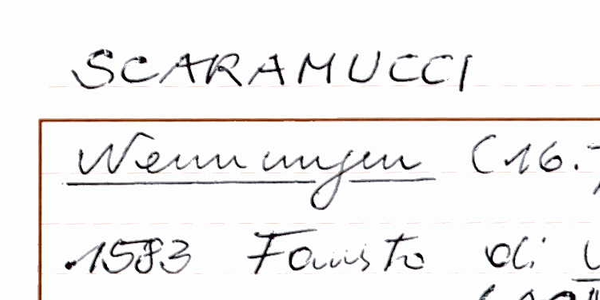 SCARAMUCCI
Nennungen (16.
.1583 Fausto di